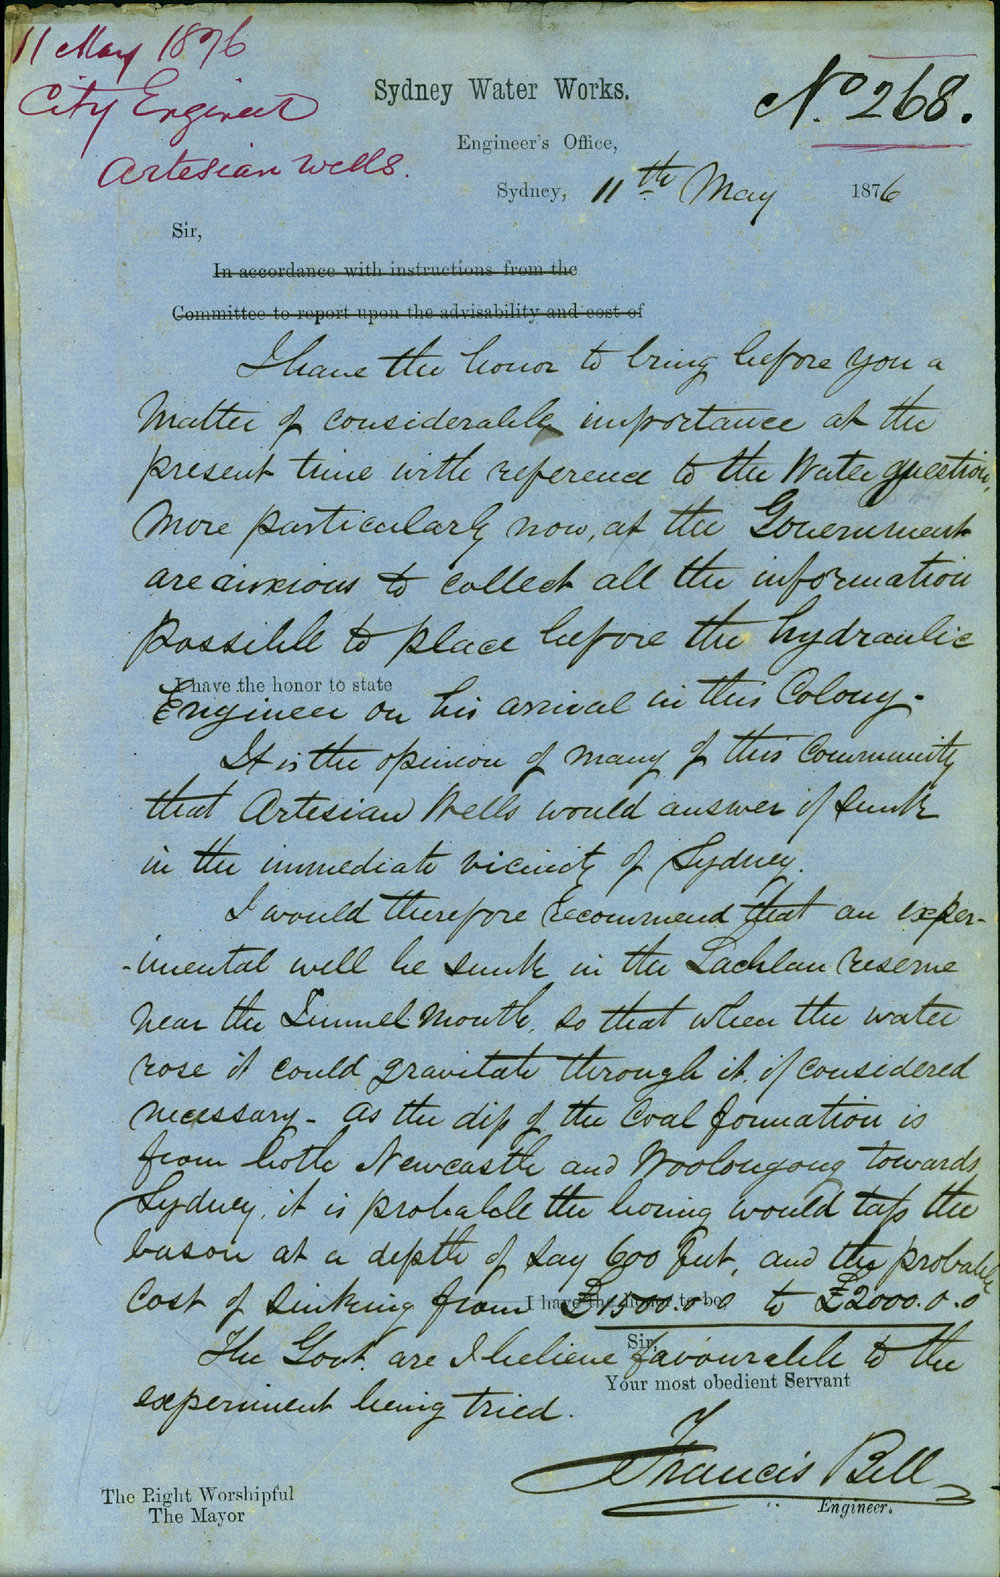 11 May 1876
City Engineer
Artesian Wells.
No. 268.
Sydney Water Works.
Engineer's Office,
Sydney, 11th May 1876
Sir,
In accordance with instructions from the
Committee to report upon the advisability and cost of
I have the honor to bring before you a
Matter of considerable importance at the
present time with reference to the Water question,
More particularly now, as the Government
are anxious to collect all the information
possible to place before the hydraulic
I have the honor to state
Engineer on his arrival in this Colony.
It is the opinion of many of this Community
that Artesian Wells would answer if sunk
in the immediate vicinity of Sydney.
I would therefore recommend that an exper-
-imental well be sunk in the Lachlan reserve
near the Tunnel Mouth, so that when the water
rose it could gravitate through it, if considered
necessary - As the dip of the Coal formation is
from both Newcastle and Woolongong towards
Sydney, it is probable the boring would tap the
bason at a depth of say 600 feet, and the probable
Cost of sinking from £1500.0.0 to £2000.0.0
I have the honor to be
The Govt. are I believe favourable to the
Sir,
Your most obedient Servant
experiment being tried.
Francis Bell
Engineer.
The Right Worshipful
The Mayor